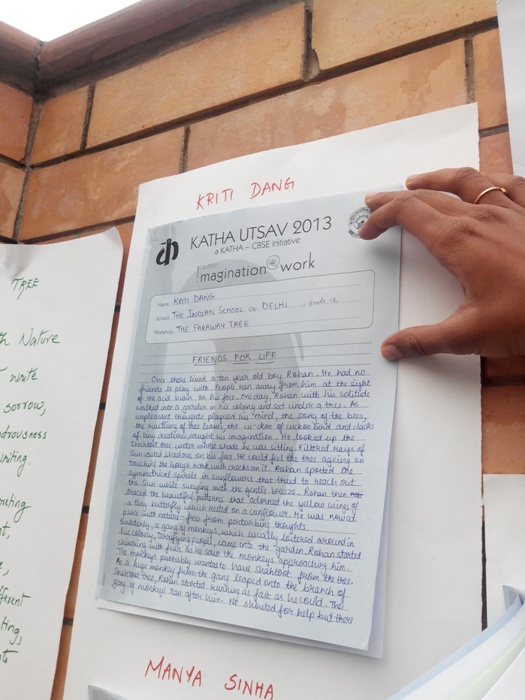 KRITI DANG
KATHA UTSAV 2013
a KATHA - CBSE initiative
Imagination@work
Name: KRITI DANG
School: THE INDIAN SCHOOL
DELHI
Workshop: THE FARAWAY TREE
FRIENDS FOR LIFE
Once there lived a ten year old boy Rohan. He had no
friends to play with. People ran away from him at the sight
of the acid burn on his face. One day, Rohan with his solitude
walked into a garden in his colony and sat under a tree. As
unpleasant thoughts plagued his mind, the song of the bees,
the rustling of tree leaves, the cuckoo of cuckoo bird and clacks
of tiny creatures caught his imagination. He looked up the
Shahtoot tree under whose shade he was sitting. Filtered rays of
Sun could shadow on his face. He could feel the tree ageing on
touching the rough bark with cracks on it. Rohan spotted the
symmetrical spirals in sunflowers that tried to reach out
the Sun while swaying with the gentle breeze. Rohan then
traced the beautiful patterns that adorned the yellow wings of
a tiny butterfly which rested on a sunflower. He was now at
peace with nature, free from perturbing thoughts.
Suddenly, a gang of monkeys, which usually loitered around in
his colony, terrifying people, came into the garden. Rohan started
shivering with fear as he saw the monkeys approaching him.
The monkeys probably wanted to have shahtoot from the tree.
As a huge monkey from the gang leaped onto the branch of
Shahtoot tree, Rohan started running as fast as he could. The
gang of monkeys ran after him. He shouted for help but there
MANYA SINHA
TREE
Nature
write
sorrow,